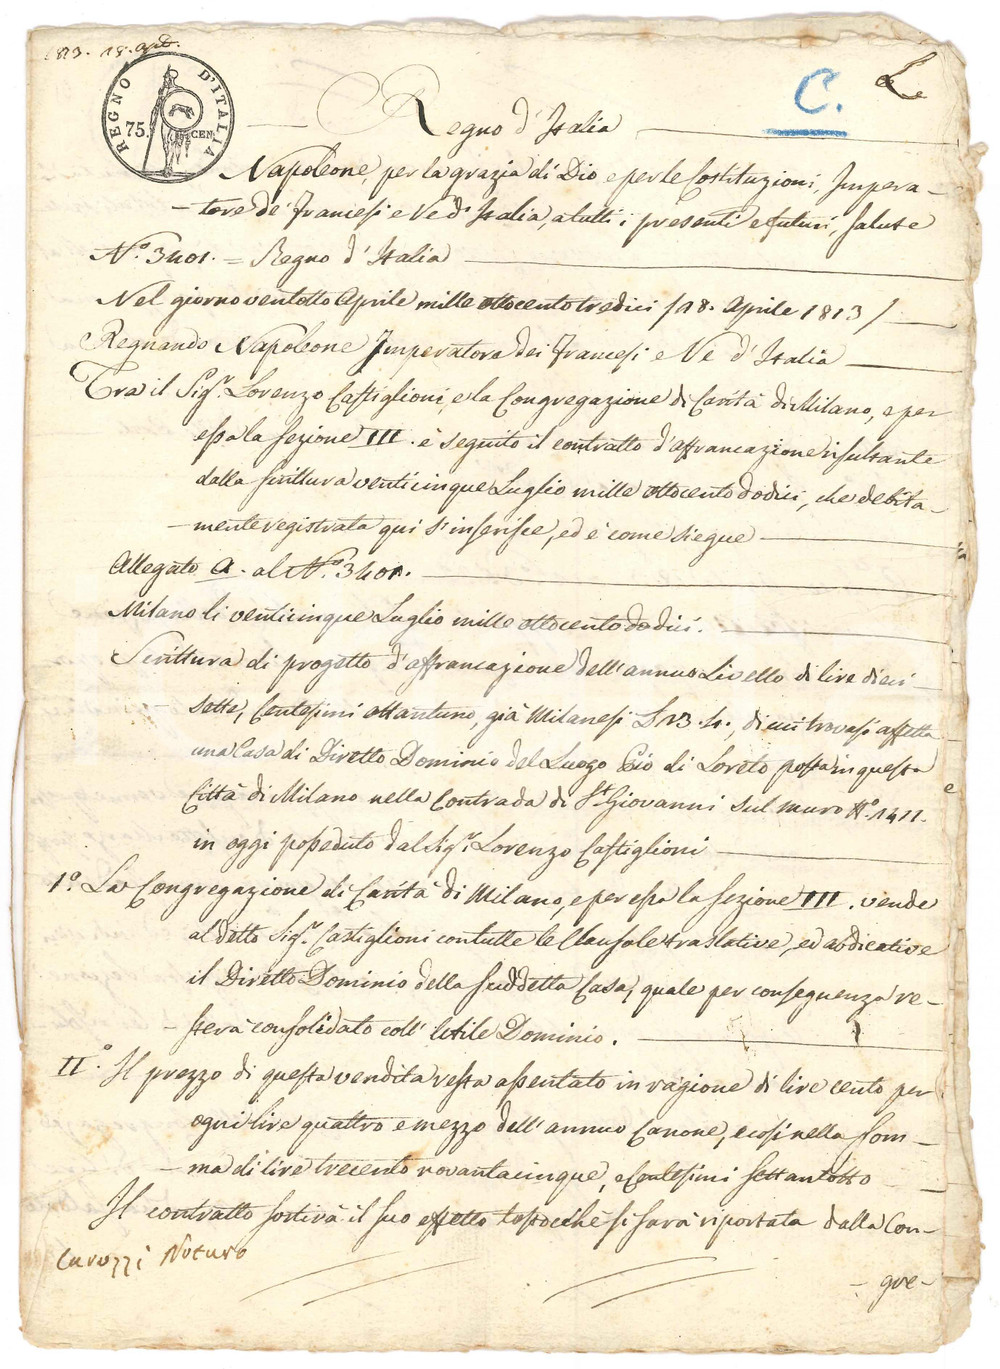 1813. 18. Aple.
REGNO D'ITALIA
75. CEN.
C.
Regno d'Italia
Napoleone, per la grazia di Dio e per le Costituzioni, Impera-
-tore de' Francesi e Re d'Italia, a tutti i presenti e futuri, salute
N.o 3401. = Regno d'Italia
Nel giorno ventotto Aprile mille ottocento tredici /18. Aprile 1813/
Regnando Napoleone Imperatore dei Francesi e Re d'Italia
Tra il Sig.r Lorenzo Castiglioni, e la Congregazione di Carità di Milano, e per
essa la Sezione III. è seguito il contratto d'affrancazione risultante
dalla scrittura venticinque Luglio mille ottocento dodici, che debita-
-mente registrata qui s'inserisce, ed è come siegue
Allegato A. al N.o 3401.
Milano li venticinque Luglio mille ottocento dodici.
Scrittura di progetto d'affrancazione dell'annuo Livello di lire dieci
sette, Centesimi ottantuno, già Milanesi £ 23. 4., di cui trovasi affetta
una Casa di Diretto Dominio del Luogo Pio di Loreto posta in questa
Città di Milano nella Contrada di S.t Giovanni sul muro N.o 1411.
in oggi posseduto dal Sig.r Lorenzo Castiglioni
1.o La Congregazione di Carità di Milano, e per essa la Sezione III. vende
al detto Sig.r Castiglioni con tutte le Clausole traslative, ed abdicative
il Diretto Dominio della suddetta Casa, quale per conseguenza re-
-sterà consolidato coll'Utile Dominio.
II.o Il prezzo di questa vendita resta assentato in ragione di lire cento per
ogni lire quattro e mezzo dell'annuo Canone, e così nella som-
-ma di lire trecento novantacinque, e Centesimi settantotto
Il contratto sortirà il suo effetto tostochè si sarà riportata dalla Con-
Carozzi Notaro
-gre-